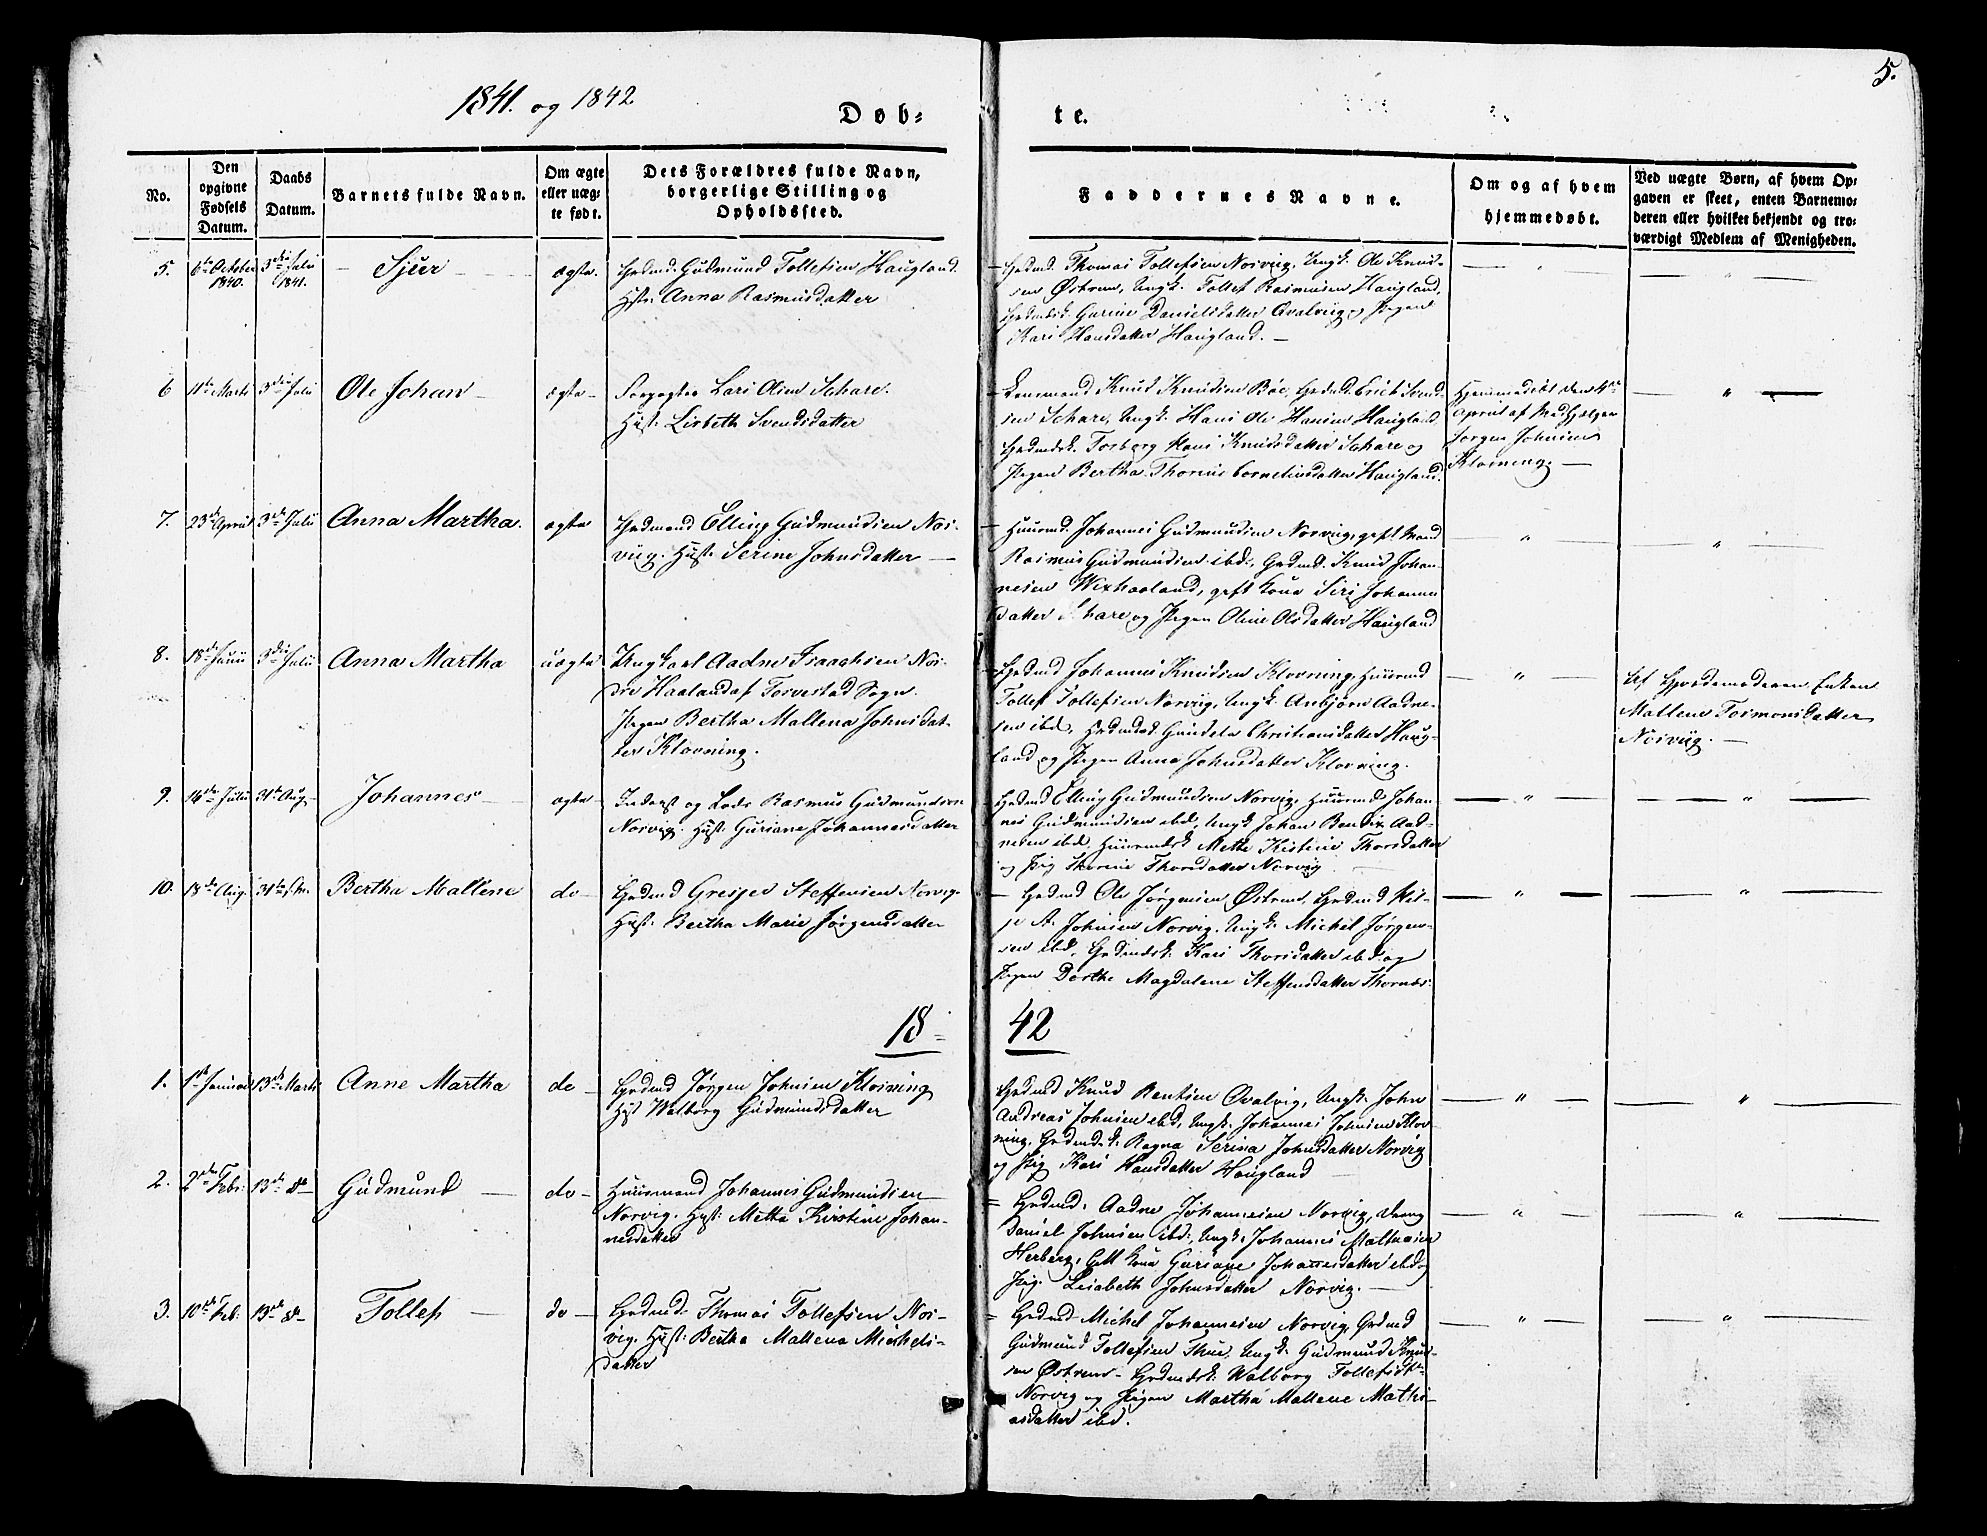 1841. og 1842
5.
Døb-
te.
No.
Den opgivne Fødsels Datum.
Daabs Datum.
Barnets fulde Navn.
Om ægte eller uæg-te født.
Dets Forældres fulde Navn, borgerlige Stilling og Opholdssted.
Faddernes Navne.
Om og af hvem hjemmedøbt.
Ved uægte Børn, af hvem Op-gaven er skeet, enten Barnemo-deren eller hvilket bekjendt og tro-værdigt Medlem af Menigheden.
5. 6te October 1840. 3die Julii 1841. Sjur ægte
Grdmd. Gudmund Tollefsen Haugland.
Hstr: Anna Rasmusdatter
Grdmd. Thomas Tollefsen Norvig, Ungk. Ole Knud-
sen Østrem, Ungk. Tollef Rasmusen Haugland,
Grdmdsk. Gurine Danielsdatter Qvalvig og Pigen
Kari Hansdatter Haugland.
6 11te Marts 3die Julii Ole Johan ægte
Lars Olsen Schare.
Hust. Lisbeth Svendsdatter
Lensmand Knud Knudsen Bøe, Grdmd. Erich Svend-
sen Schare, Ungk. Hans Ole Hansen Haugland
Grdmdsk. Torborg Knudsdatter Schare og
Pigen Bertha Thorine Corneliusdatter Haugland.
Hjemmedøbt den 4de
April af Medhjælper
Jørgen Johnsen
Klovning.
7. 23de April 3die Julii Anna Martha. ægte
Grdmand Elling Gudmundsen Nor-
vig. Hust. Serine Johnsdatter
Huusmd. Johannes Gudmundsen Norvig, gift Mand
Rasmus Gudmundsen ibd., Grdmd. Knud Johan-
nesen Wixhaaland, gift Kone Siri Johannes
datter Schare og Pigen Oline Olsdatter Haugland
8. 18de Junii 3die Julii Anna Martha uægte
Ungkarl Aadne Isaachsen Nor-
dre Haaland af Torvestad Sogn.
Pigen Bertha Mallena Johnsdat-
ter Klovning.
Grdmd Johannes Knudsen Klovning, Huusmd
Tollef Tollefsen Norvig, Ungk. Anbjørn Aadne-
sen ibd., Grdmdsk Gundela Christiansdatter Haug-
land og Pigen Anna Johnsdatter Klovning.
af Gjordemoderen Enken
Mallene Tormondsdatter
Norvig.
9. 14de Julii 31te Aug. Johannes ægte
Inderst og Lods Rasmus Gudmundsen
Norvig. Hust: Guriane Johannesdatter
Grdmd Elling Gudmundsen Norvig, Huusmd. Johan-
nes Gudmundsen ibd, Ungk. Johan Bendix Aad-
nesen ibd, Huusmdsk. Mette Kistine Thorsdatter
og Pig Thorine Thorsdatter Norvig
10. 18de Aug. 31te do. Bertha Mallene do
Grdmd Greger Steffensen Norvig.
Hust: Bertha Marie Jørgensdatter
Grdmd Ole Jørgensen Østrem, Grdmd Hel-
je A. Johnsen Norvig, Ungk. Michel Jørgen-
sen ibd, Grdmdsk. Kari Thorsdatter ibd og
Pigen Dorthe Magdalene Steffensdatter Thornæs:
18-
42
1. 1ste Januar 13de Marts Anne Martha do
Grdmd Jørgen Johnsen Klovning
Hust Walborg Gudmundsdatter
Grdmd Knud Qvalvig, Ungk. John
Andreas Johnsen ibd, Ungk. Johannes Johnsen Klov-
ning, Grdmdsk. Ragna Serina Johnsdatter Norvig
og Pig Kari Hansdatter Haugland
2. 2den Febr: 13de do Gudmund do
Huusmand Johannes Gudmundsen
Norvig. Hust: Metta Kirstine Johan-
nesdatter
Grdmd. Aadne Johannesen Norvig, Dreng
Daniel Johnsen ibd., Ungk. Johannes Mathiasen
Herberg, Gift Kone Guriane Johannesdatter ibd og
Pig. Lisabeth Johnsdatter Norvig.
3. 10de Feb: 13de do Tollef do
Grdmd. Thomas Tollefsen Nor-
vig. Hust: Bertha Mallena Michels-
datter
Grdmd Michel Johannesen Norvig, Grdmd
Gudmund Tollefsen Thue, Ungk. Gudmund Knud-
sen Østrem. Grdmdsk. Walborg Tollefsdtr
Norvig og Pigen Martha Mallene Mathi-
asdatter ibd.